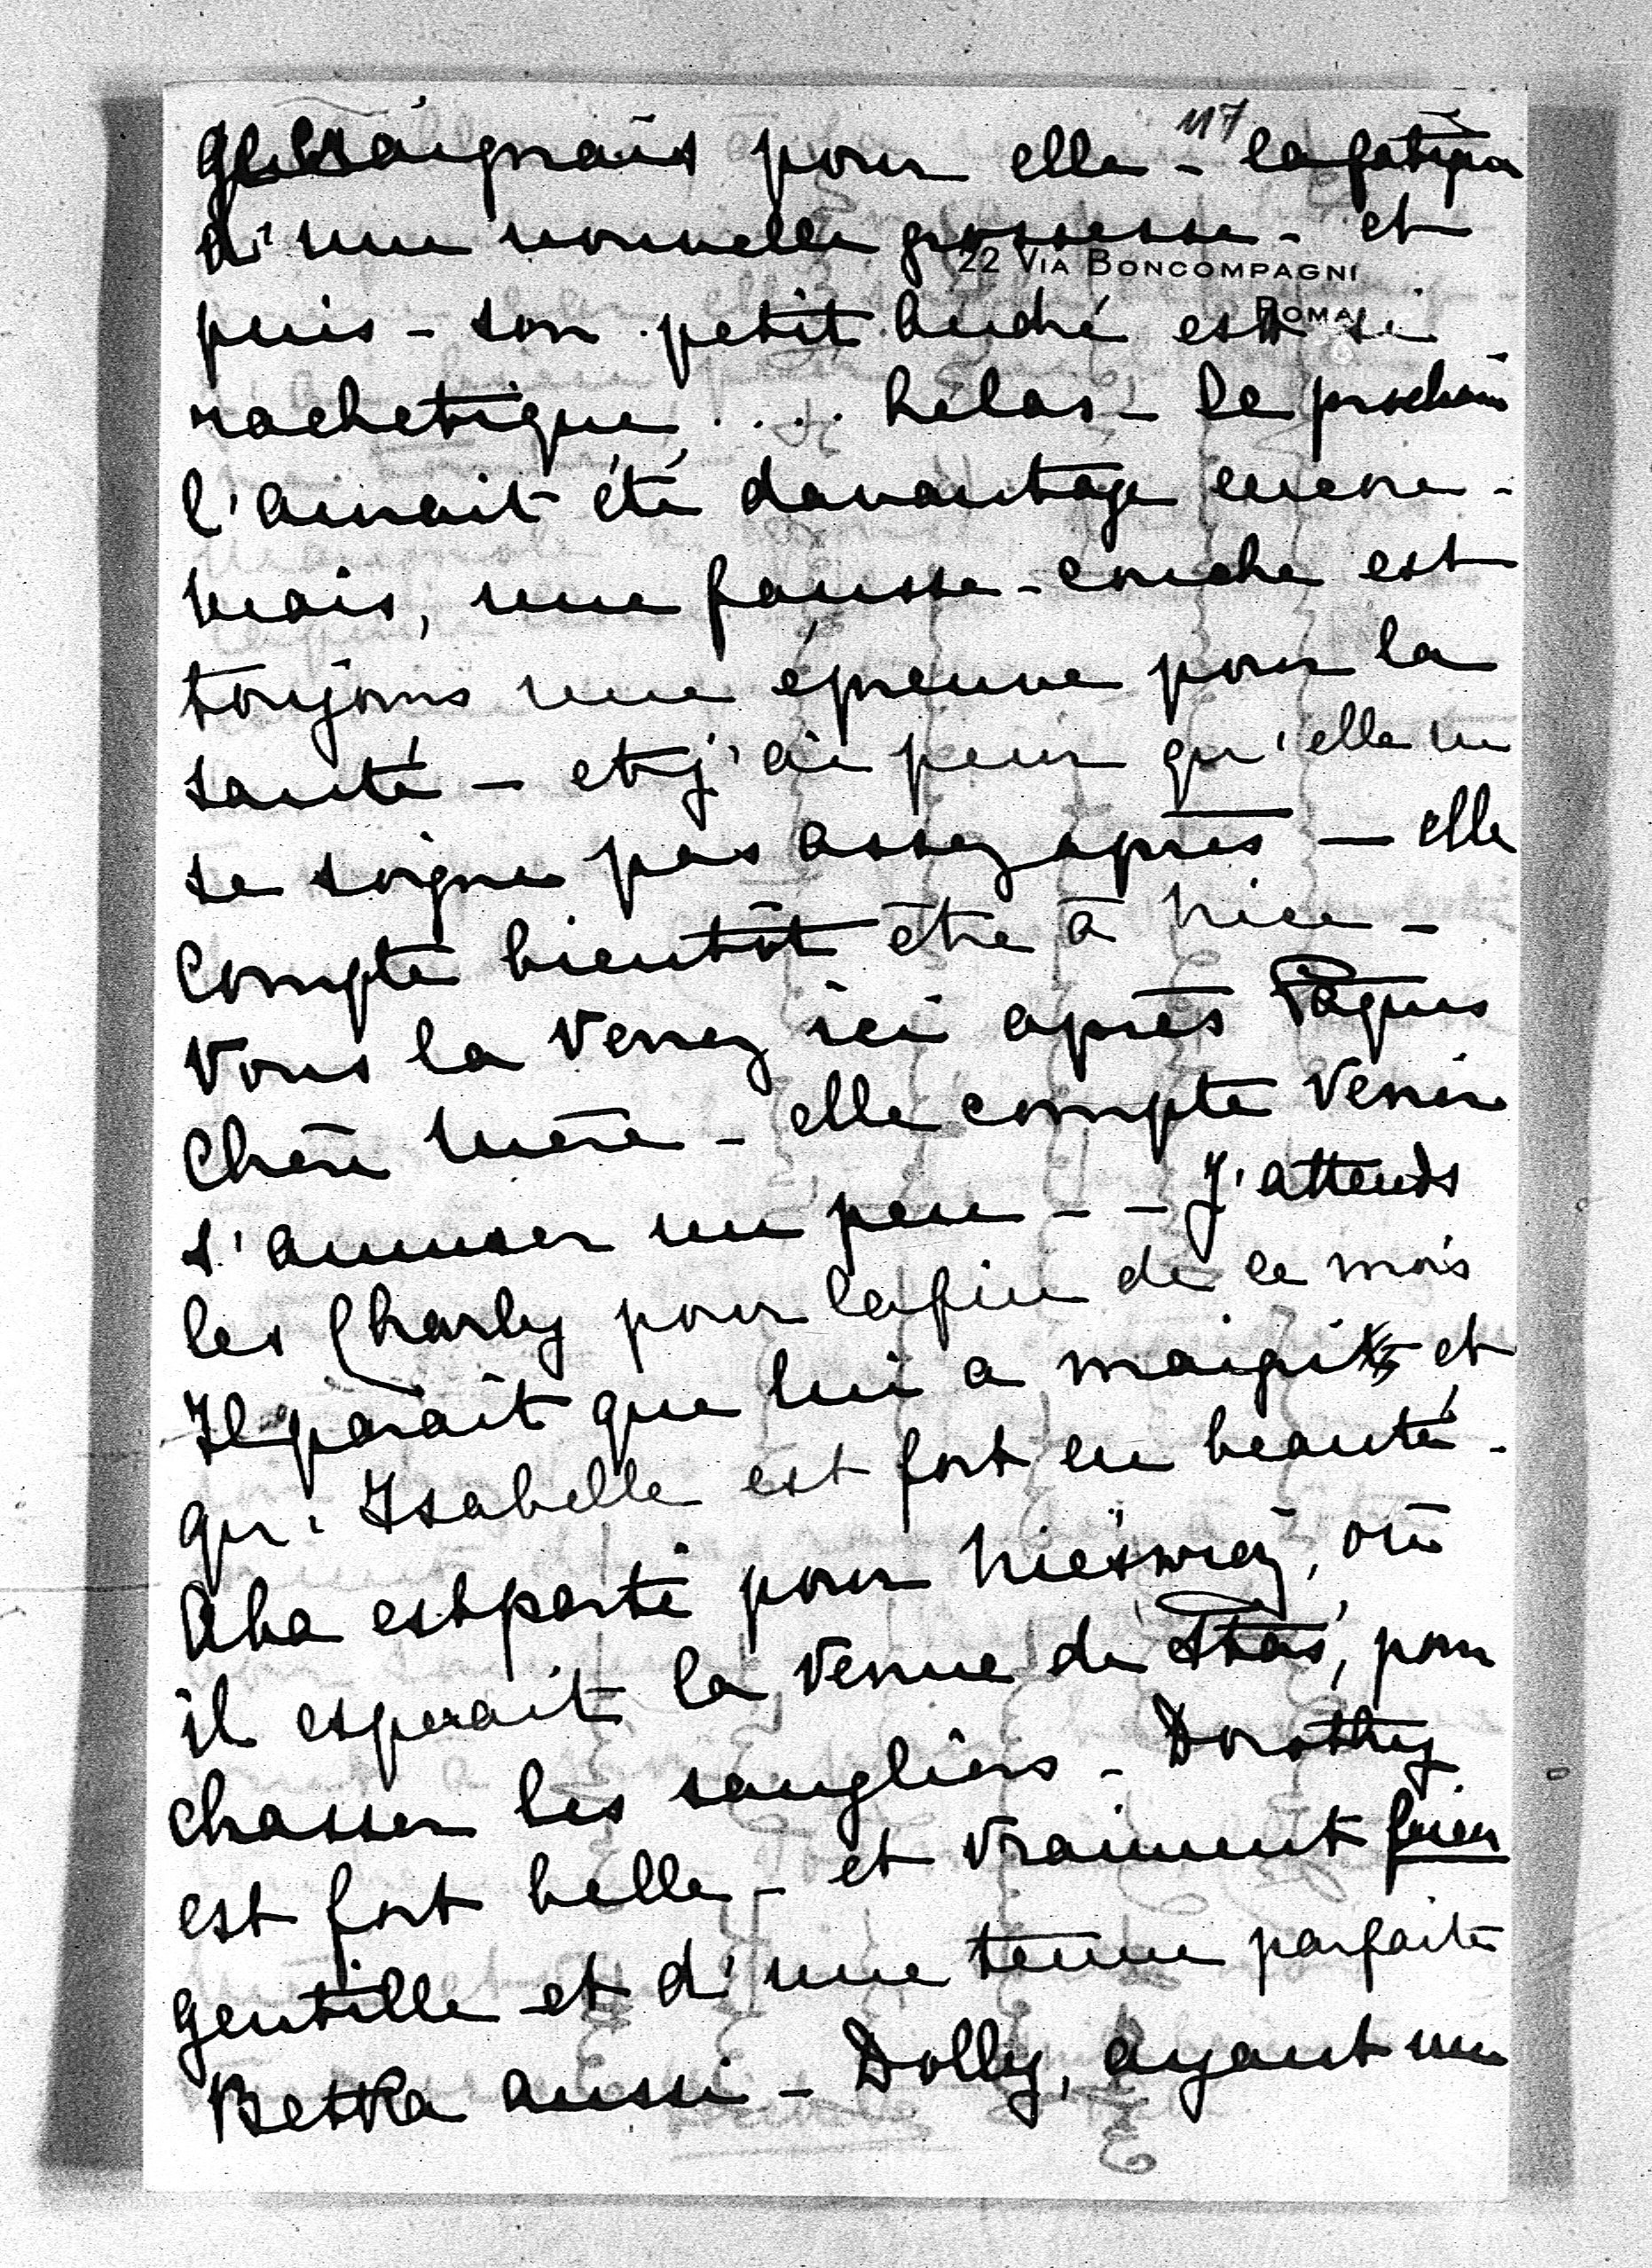 117
Je craignais pour elle - la fatigue
d'une nouvelle grossesse - et
22 VIA BONCOMPAGNI
ROMA
puis - son petit André est si
rachetique .... helas - le prochain
l'aurait été davantage encore -
mais, une fausse-couche est
toujours une épreuve pour la
santé - et j'ai peur qu'elle ne
se soigne pas assez après - elle
compte bientôt être à Nice -
Vous la verrez ici après Pâques
Chère Mère - elle compte venir
s'amuser un peu - - J'attends
les Charly pour la fin de ce mois
Il parait que lui a maigri et
qu'Isabelle est fort en beauté -
Aba est parti pour Nieśwież, où
il esperait la venue de Staś, pour
chasser les sangliers - Dorothy
est fort belle - et vraiment
gentille et d'une tenue parfaite
Betka aussi - Dolly, ayant un